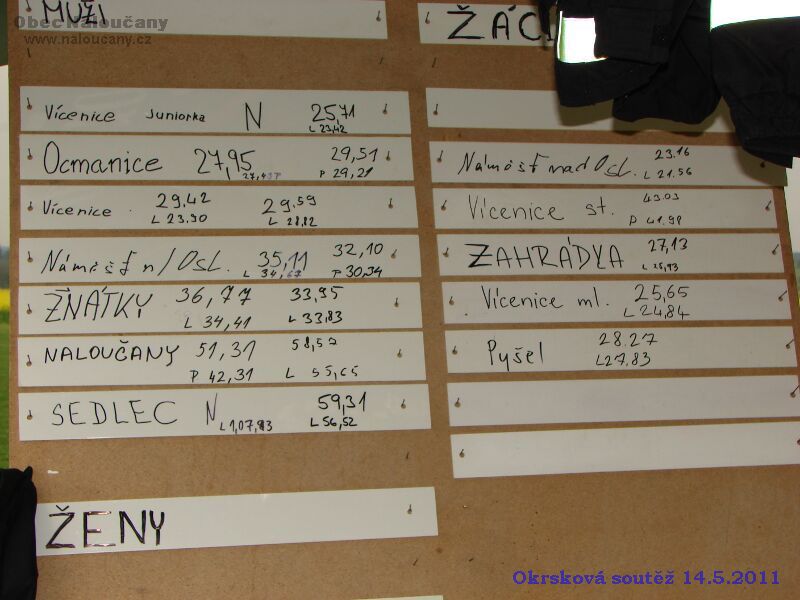 MUŽI
Obec Naloučany
www.naloucany.cz
Vícenice Juniorka N 25,71
L 23,42
Ocmanice 27,95 29,51
P 29,21
Vícenice 29,42 29,59
L 23,90 L 28,82
Náměšť n/Osl. 35,11 32,10
L 34,67 P 30,94
ŽŇÁTKY 36,77 33,95
L 34,41 L 33,83
NALOUČANY 51,31 58,57
P 42,31 L 55,65
SEDLEC N 59,31
L 1,07,93 L 56,52
ŽENY
ŽÁCI
Náměšť nad Osl. 23.16
L 21.56
Vícenice st. 43.03
P 41.98
ZAHRÁDKA 27,13
L 25,93
Vícenice ml. 25,65
L 24,84
Pyšel 28.27
L 27.83
Okrsková soutěž 14.5.2011